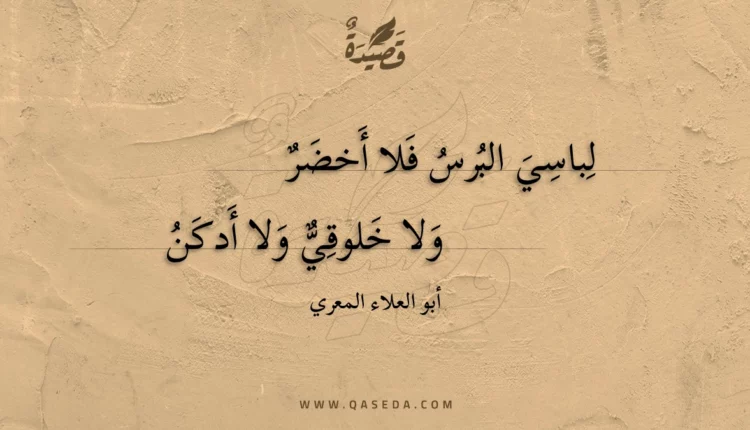 قَصِيدَةٌ
لِباسِيَ البُرسُ فَلا أَخضَرٌ
وَلا خَلوقِيٌّ وَلا أَدكَنُ
أبو العلاء المعري
WWW.QASEDA.COM